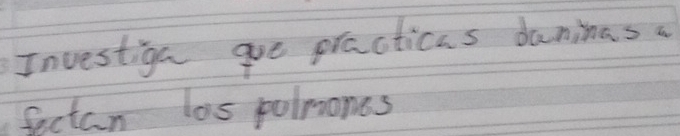 Investiga que practicas daninas a
fectan los pulmones